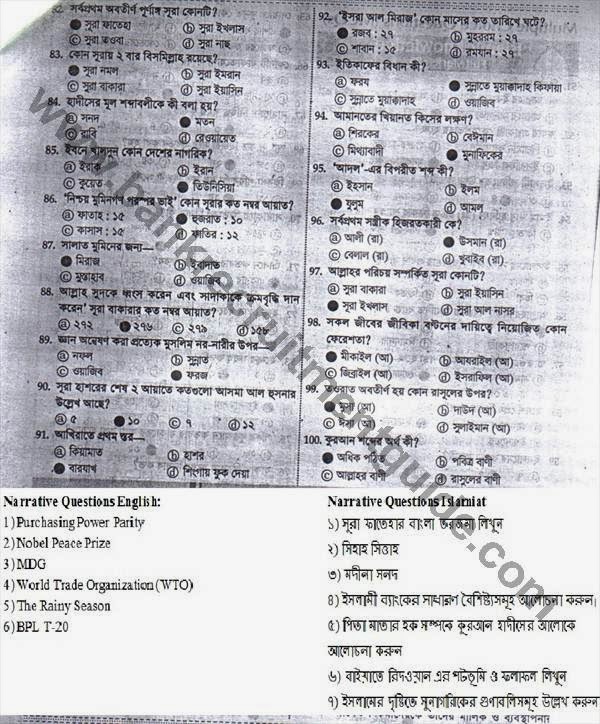 ৮২. সর্বপ্রথম অবতীর্ণ পূর্ণাঙ্গ সুরা কোনটি?
সুরা ফাতেহা ⓑ সুরা ইখলাস
ⓒ সুরা তওবা ⓓ সুরা নাছ
৮৩. কোন সুরায় ২ বার বিসমিল্লাহ রয়েছে?
সুরা নমল ⓑ সুরা ইমরান
ⓒ সুরা বাকারা ⓓ সুরা ইয়াসিন
84. হাদীসের মূল শব্দাবলীকে কী বলা হয়?
ⓐ সনদ মতন
ⓒ রাবি ⓓ রেওয়ায়েত
85. ইবনে খালদুন কোন দেশের নাগরিক?
ⓐ ইরাক ⓑ ইরান
ⓒ কুয়েত তিউনিসিয়া
86. 'নিশ্চয় মুমিনগণ পরস্পর ভাই' কোন সুরার কত নম্বর আয়াত?
ⓐ ফাতাহ : ১৫ হুজরাত : ১০
ⓒ কাসাস : ১৫ ⓓ ফাতির : ১২
87. সালাত মুমিনের জন্য—
মিরাজ ⓑ ইবাদাত
ⓒ মুস্তাহাব ⓓ ওয়াজিব
88. আল্লাহ সুদকে ধ্বংস করেন এবং সাদাকাকে ক্রমবৃদ্ধি দান
করেন' সুরা বাকারার কত নম্বর আয়াত?
ⓐ ২৭২ ২৭৬ ⓒ ২৭৯ ⓓ ১৫৮
89. জ্ঞান অন্বেষণ করা প্রত্যেক মুসলিম নর-নারীর উপর—
ⓐ নফল ⓑ সুন্নাত
ⓒ ওয়াজিব ফরজ
90. সুরা হাশরের শেষ ২ আয়াতে কতগুলো আসমা আল হুসনার
উল্লেখ আছে?
ⓐ ৫ ১০ ⓒ ৭ ⓓ ১২
91. আখিরাতে প্রথম স্তর—
ⓐ কিয়ামাত ⓑ হাশর
বারযাখ ⓓ শিংগায় ফুক দেয়া
92. 'ইসরা আল মিরাজ' কোন মাসের কত তারিখে ঘটে?
রজব : ২৭ ⓑ মুহররম : ২৭
ⓒ শাবান : ১৫ ⓓ রমযান : ২৭
93. ইতিকাফের বিধান কী?
ⓐ ফরয সুন্নাতে মুয়াক্কাদাহ কিফায়া
ⓒ সুন্নাতে মুয়াক্কাদাহ ⓓ ওয়াজিব
94. আমানতের খিয়ানত কিসের লক্ষণ?
ⓐ শিরকের ⓑ বেঈমান
ⓒ মিথ্যাবাদী মুনাফিকের
95. 'আদল'-এর বিপরীত শব্দ কী?
ⓐ ইহসান ⓑ ইলম
যুলুম ⓓ আমল
96. সর্বপ্রথম সস্ত্রীক হিজরতকারী কে?
ⓐ আলী (রা) উসমান (রা)
ⓒ বেলাল (রা) ⓓ খুবাইব (রা)
97. আল্লাহর পরিচয় সম্পর্কিত সুরা কোনটি?
ⓐ সুরা বাকারা ⓑ সুরা ইয়াসিন
সুরা ইখলাস ⓓ সুরা আল নাসর
98. সকল জীবের জীবিকা বন্টনের দায়িত্বে নিয়োজিত কোন
ফেরেশতা?
মীকাইল (আ) ⓑ আযরাইল (আ)
ⓒ জিব্রাইল (আ) ⓓ ইসরাফিল (আ)
99. তওরাত অবতীর্ণ হয় কোন রাসুলের উপর?
মুসা (আ) ⓑ দাউদ (আ)
ⓒ ঈসা (আ) ⓓ সুলাইমান (আ)
100. কুরআন শব্দের অর্থ কী?
অধিক পঠিত ⓑ পবিত্র বাণী
ⓒ আল্লাহর বাণী ⓓ রাসুলের বাণী
www.bankrecruitmentguide.com
Narrative Questions English:
1) Purchasing Power Parity
2) Nobel Peace Prize
3) MDG
4) World Trade Organization (WTO)
5) The Rainy Season
6) BPL T-20
Narrative Questions Islamiat
১) সূরা ফাতেহার বাংলা তরজমা লিখুন
২) সিহাহ সিত্তাহ
৩) মদীনা সনদ
৪) ইসলামী ব্যাংকের সাধারণ বৈশিষ্ট্যসমূহ আলোচনা করুন।
৫) পিতা মাতার হক সম্পকে কুরআন হাদীসের আলোকে
আলোচনা করুন
৬) বাইয়াতে রিদওয়ান এর পটভূমি ও ফলাফল লিখুন
৭) ইসলামের দৃষ্টিতে সুনাগরিকের গুণাবলিসমূহ উল্লেখ করুন